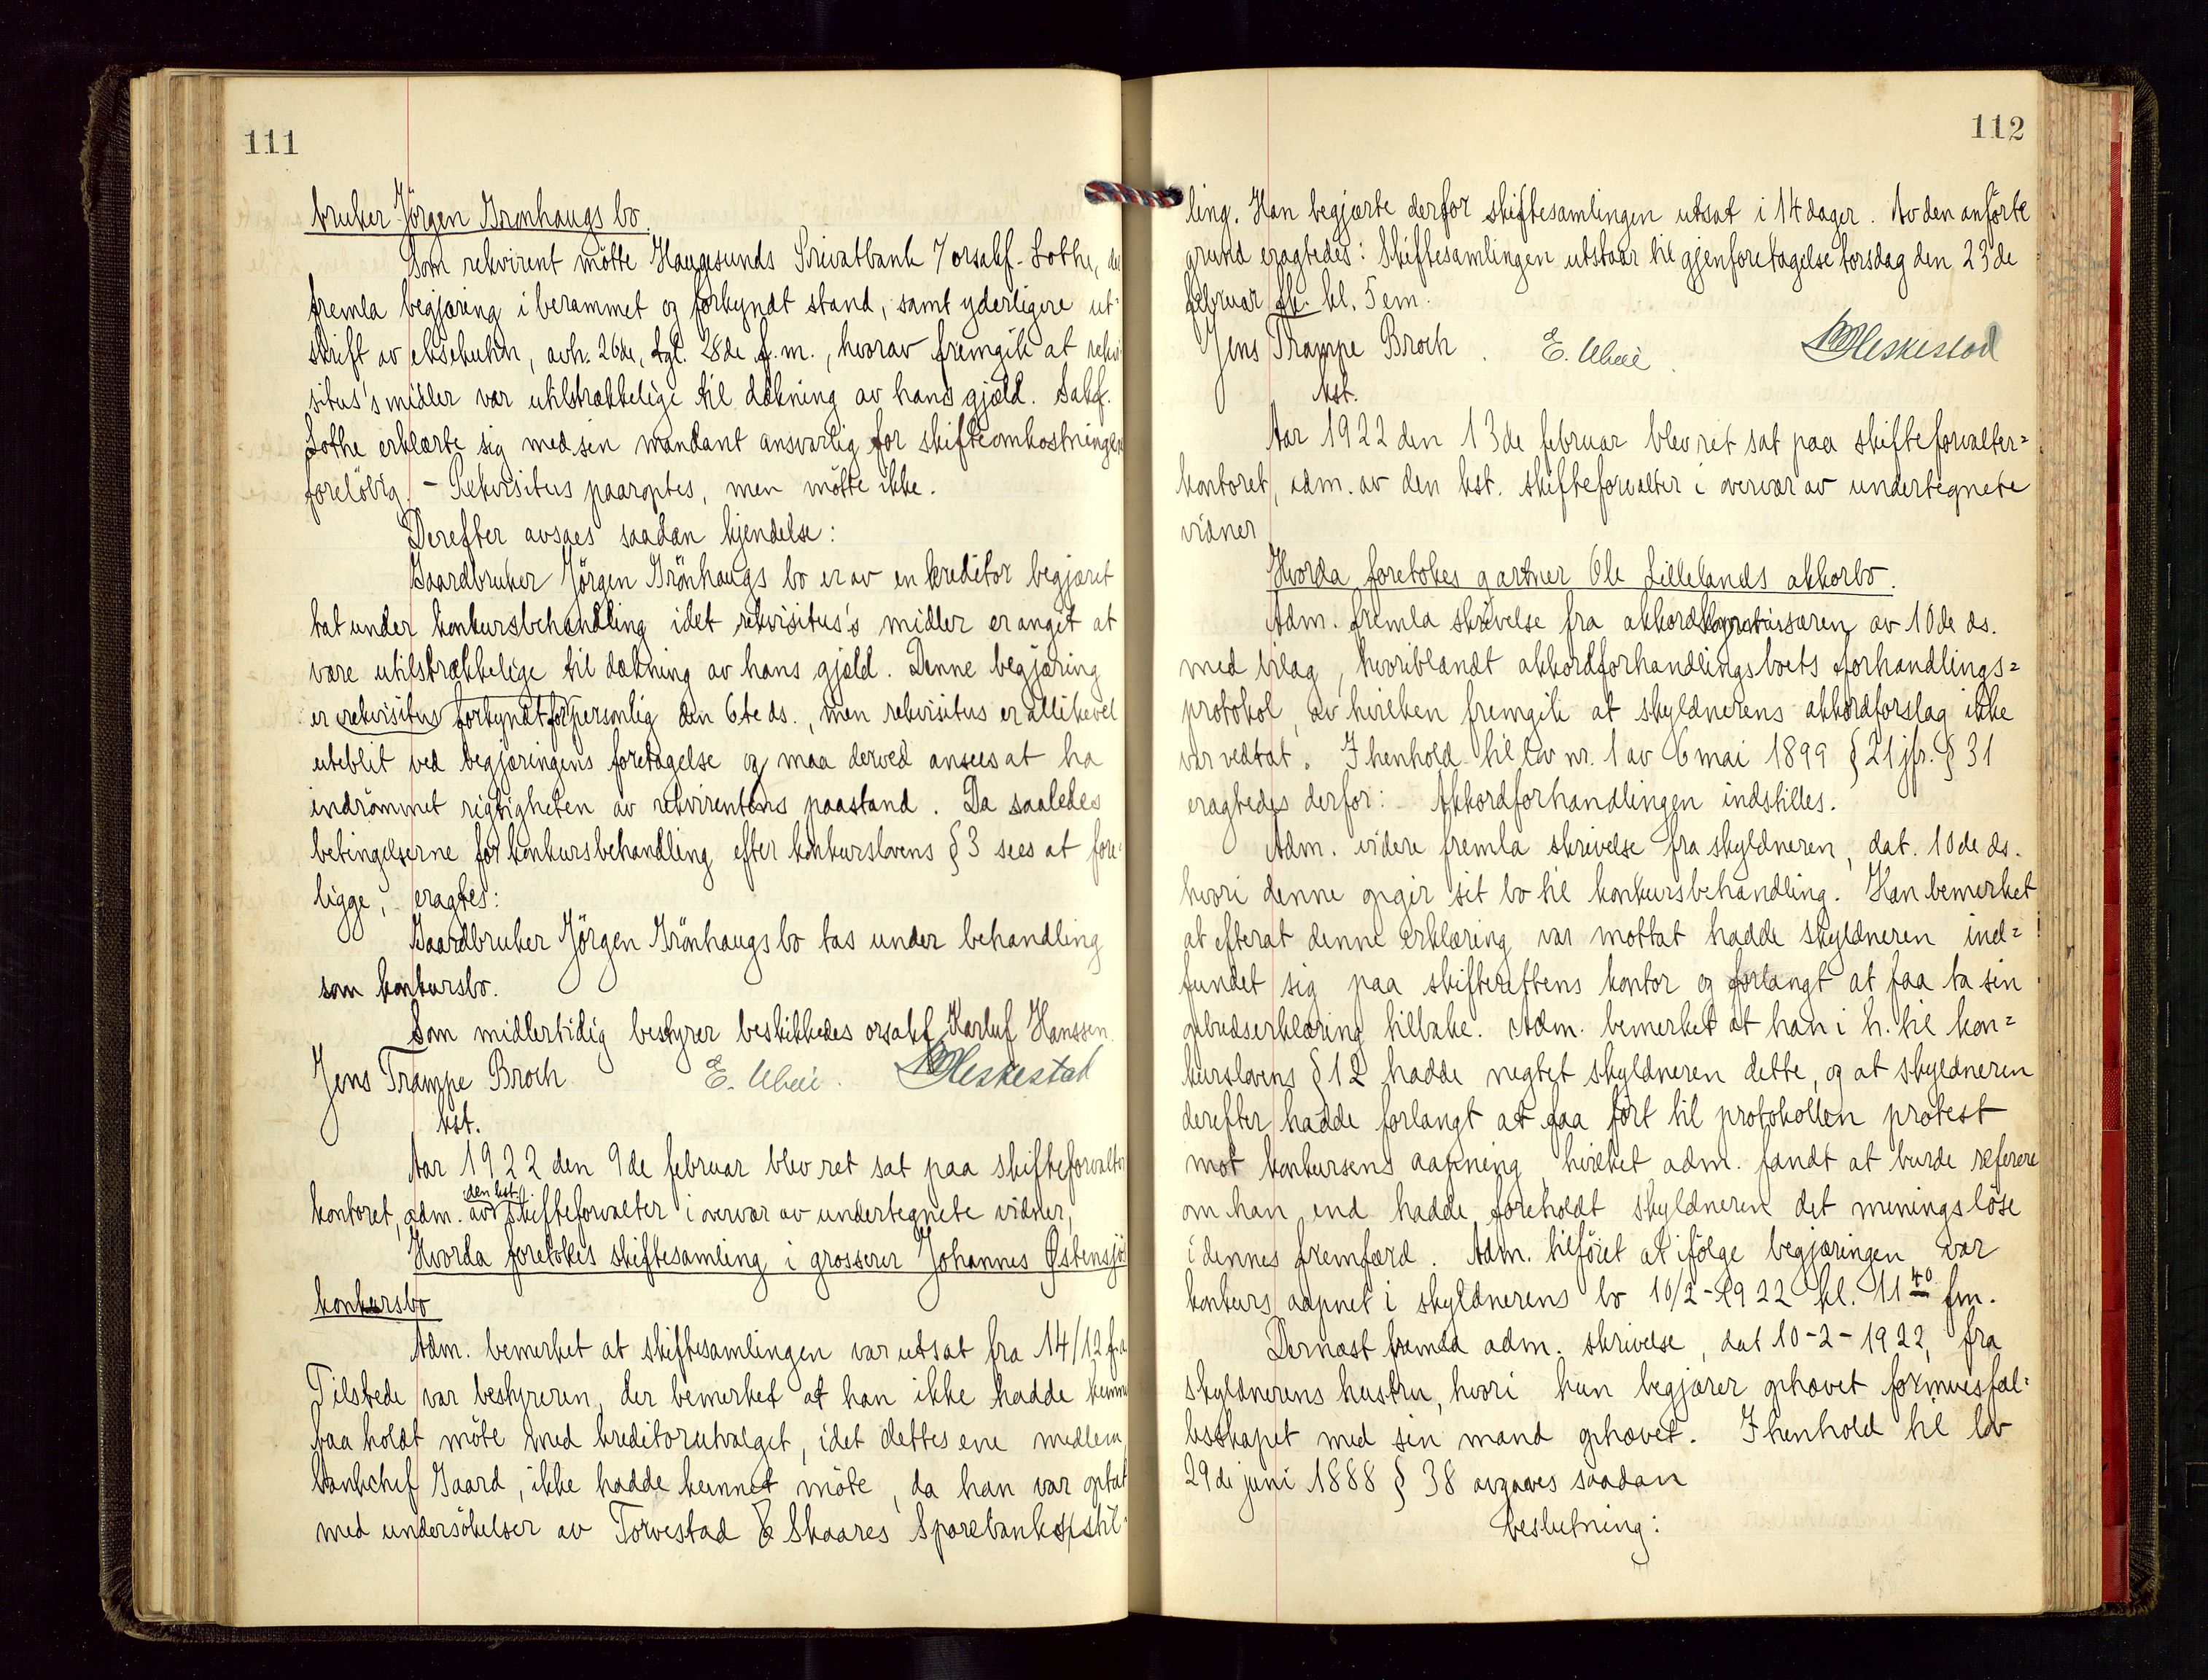 111
bruker Jörgen Grönhaugs bo.
Som rekvirent mötte Haugesunds Privatbank v/ orsakf. Lothe, der
fremla begjæring i berammet og forkyndt stand, samt yderligere ut-
skrift av eksekuhn, avh. 26de, tgl. 28de f.m., hvorav fremgik at rekvi-
situs's midler var utilstrækkelige til dækning av hans gjæld. Sakf.
Lothe erklærte sig med sin mandant ansvarlig for skifteomkostningene
forelöbig. - Rekvisitus paaroptes, men mötte ikke.
Derefter avsaes saadan kjendelse:
Gaardbruker Jörgen Grönhaugs bo er av en kreditor begjæret
tat under konkursbehandling idet rekvisitus's midler er anget at
være utilstrækkelige til dækning av hans gjæld. Denne begjæring
er rekvisitus forkyndt for personlig den 6te ds., men rekvisitus er allikevel
uteblit ved begjæringens foretagelse og maa derved ansees at ha
indrömmet rigtigheten av rekvirentens paastand. Da saaledes
betingelserne for konkursbehandling efter konkurslovens § 3 sees at fore-
ligge, eragtes:
Gaardbruker Jörgen Grönhaugs bo tas under behandling
som konkursbo.
Som midlertidig bestyrer beskikkedes orsakf. Karluf Hanssen.
Jens Trampe Broch E. Heskestad
kst.
Aar 1922 den 9de februar blev ret sat paa skifteforvalter
kontoret, adm. av den kst. skifteforvalter i overvær av undertegnete vidner,
Hvorda foretokes skiftesamling i grosserer Johannes Østensjös
konkursbo
Adm. bemerket at skiftesamlingen var utsat fra 14/12 f.a.
Tilstede var bestyreren, der bemerket at han ikke hadde kunnet
faa holdt möte med kreditorutvalget, idet dettes ene medlem,
bankchef Gaard, ikke hadde kunnet möte, da han var optat
med undersökelser av Torvestad & Skaares Sparebanks stil-
112
ling. Han begjærte derfor skiftesamlingen utsat i 14 dager. Av den anförte
grund eragtedes: Skiftesamlingen utstaar til gjenforetagelse torsdag den 23de
februar fk. kl. 5 em.
Jens Trampe Broch. E. Heskestad
kst.
Aar 1922 den 13de februar blev ret sat paa skifteforvalter=
kontoret, adm. av den kst. skifteforvalter i overvær av undertegnete
vidner
Hvorda foretokes gartner Ole Lillelands akkorbo.
Adm. fremla skrivelse fra akkordkommissæren av 10de ds.
med bilag, hvoriblandt akkordforhandlingsboets forhandlings=
protokol, av hvilken fremgik at skyldnerens akkordforslag ikke
var vedtat. I henhold til lov nr. 1 av 6 mai 1899 § 21 jfr. § 31
eragtedes derfor: Akkordforhandlingen indstilles.
Adm. videre fremla skrivelse fra skyldneren, dat. 10de ds.
hvori denne opgir sit bo til konkursbehandling. Han bemerket
at efterat denne erklæring var mottat hadde skyldneren ind=
fundet sig paa skifterettens kontor og forlangt at faa ta sin
opbudserklæring tilbake. Adm. bemerket at han i h. til kon=
kurslovens § 12 hadde negtet skyldneren dette, og at skyldneren
derefter hadde forlangt at faa fört til protokollen protest
mot konkursens aapning, hvilket adm. fandt at burde referere
om han end hadde foreholdt skyldneren det meningslöse
i dennes fremfærd. Adm. tilföiet at ifölge begjæringen var
konkurs aapnet i skyldnerens bo 10/2-1922 kl. 11 40 fm.
Dernæst fremla adm. skrivelse, dat 10-2-1922, fra
skyldnerens hustru, hvori hun begjærer ophævet formuesfæl-
lesskapet med sin mand ophævet. I henhold til lov
29de juni 1888 § 38 avgaves saadan
beslutning: